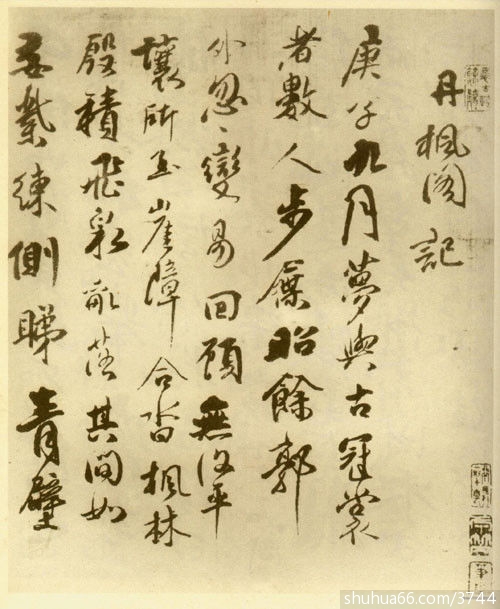 丹楓閣記
庚子九月夢與古冠裳
者數人步屧昭餘郭
外忽〻變易回顧無復平
壤所至崖障合沓楓林
殷積飛彩亂落其間如
縈練側睇青壁
shuhua66.com/3744